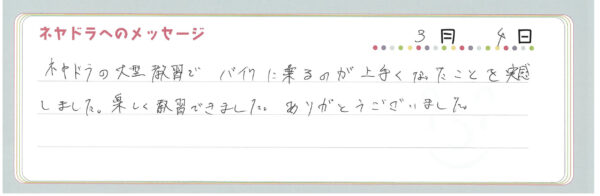 ネヤドラへのメッセージ
3月 4日
ネヤドラの大型教習で バイクに乗るのが上手くなったことを実感
しました。楽しく教習できました。 ありがとうございました。